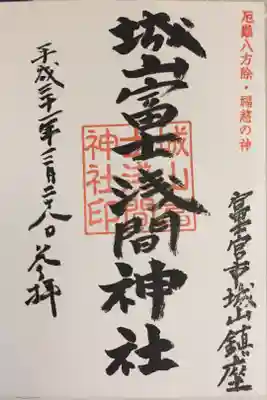 厄難八方除・福慈の神
富士宮市城山鎮座
城山富士浅間神社
城山富
士浅間
神社印
平成三十一年三月二十八日参拝